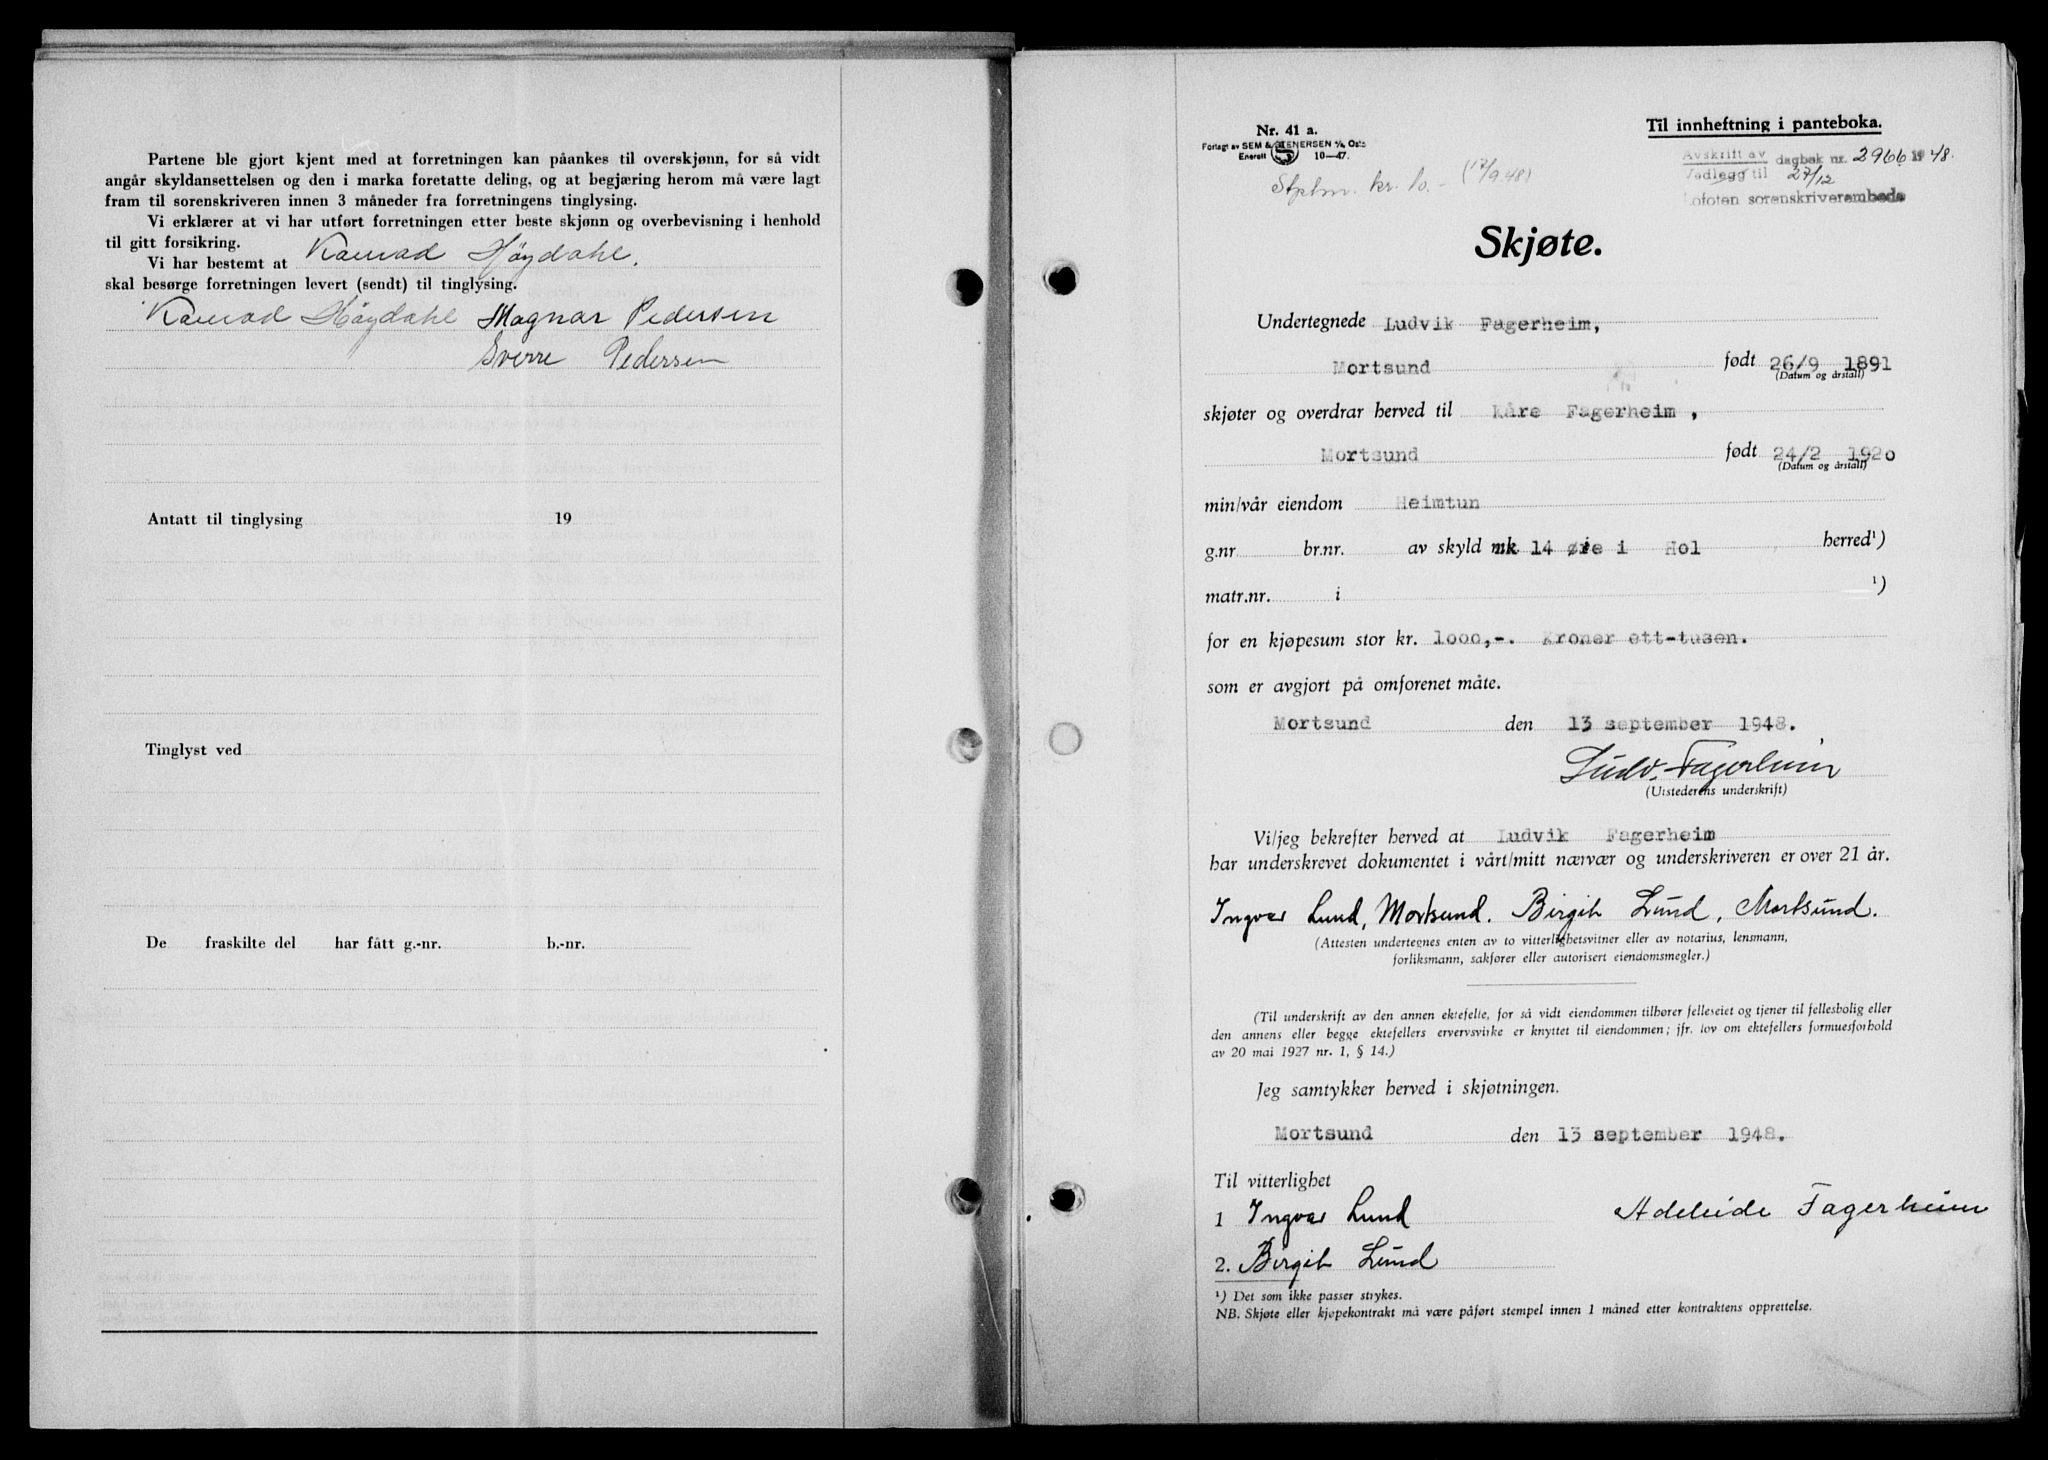 Partene ble gjort kjent med at forretningen kan påankes til overskjønn, for så vidt
angår skyldansettelsen og den i marka foretatte deling, og at begjæring herom må være lagt
fram til sorenskriveren innen 3 måneder fra forretningens tinglysing.
Vi erklærer at vi har utført forretningen etter beste skjønn og overbevisning i henhold
til gitt forsikring.
Vi har bestemt at Konrad Høydahl.
skal besørge forretningen levert (sendt) til tinglysing.
Konrad Høydahl Magnar Pedersen
Sverre Pedersen
Antatt til tinglysing 19
Tinglyst ved
De fraskilte del har fått g.-nr. b.-nr.
Nr. 41 a.
Forlagt av SEM & STENERSEN A/S, Oslo
Enerett 10—47.
Stplm. kr. 10.- (17/9.48)
Til innheftning i panteboka.
Avskrift av dagbok nr. 2966 1948.
Vedlegg til 27/12
Lofoten sorenskriverembede
Skjøte.
Undertegnede Ludvik Fagerheim,
Mortsund født 26/9 1891
(Datum og årstall)
skjøter og overdrar herved til Kåre Fagerheim,
Mortsund født 24/2 1920
(Datum og årstall)
min/vår eiendom Heimtun
g.nr br.nr. av skyld mk 14 øre i Hol herred¹)
matr.nr. i ¹)
for en kjøpesum stor kr. 1000,-. Kroner ett-tusen.
som er avgjort på omforenet måte.
Mortsund den 13 september 1948.
Ludv. Fagerheim
(Utstederens underskrift)
Vi/jeg bekrefter herved at Ludvik Fagerheim
har underskrevet dokumentet i vårt/mitt nærvær og underskriveren er over 21 år.
Ingvar Lund, Mortsund. Birgit Lund, Mortsund.
(Attesten undertegnes enten av to vitterlighetsvitner eller av notarius, lensmann,
forliksmann, sakfører eller autorisert eiendomsmegler.)
(Til underskrift av den annen ektefelle, for så vidt eiendommen tilhører felleseiet og tjener til fellesbolig eller
den annens eller begge ektefellers ervervsvirke er knyttet til eiendommen; jfr. lov om ektefellers formuesforhold
av 20 mai 1927 nr. 1, § 14.)
Jeg samtykker herved i skjøtningen.
Mortsund den 13 september 1948.
Til vitterlighet
1 Ingvar Lund Adeleide Fagerheim
2. Birgit Lund
¹) Det som ikke passer strykes.
NB. Skjøte eller kjøpekontrakt må være påført stempel innen 1 måned etter kontraktens opprettelse.